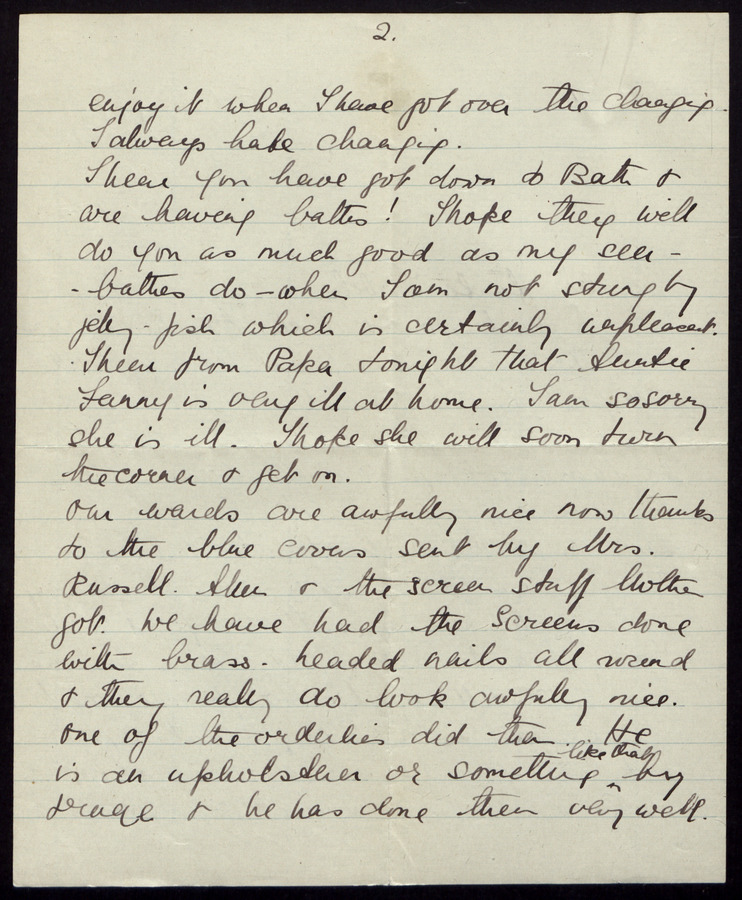 2.
enjoy it when I have got over the changing.
I always hate changing.
I hear you have got down to Bath &
are having baths! I hope they will
do you as much good as my sea-
-bathes do - when I am not stung by
jelly-fish which is certainly unpleasant.
I hear from Papa tonight that Auntie
Fanny is very ill at home. I am so sorry
she is ill. I hope she will soon turn
the corner & get on.
Our wards are awfully nice now thanks
to the blue covers sent by Mrs.
Russell. & the screen stuff Mother
got. We have had the screens done
with brass-headed nails all round
& they really do look awfully nice.
One of the orderlies did them. He
is an upholsterer or something like that by
trade & he has done them very well.